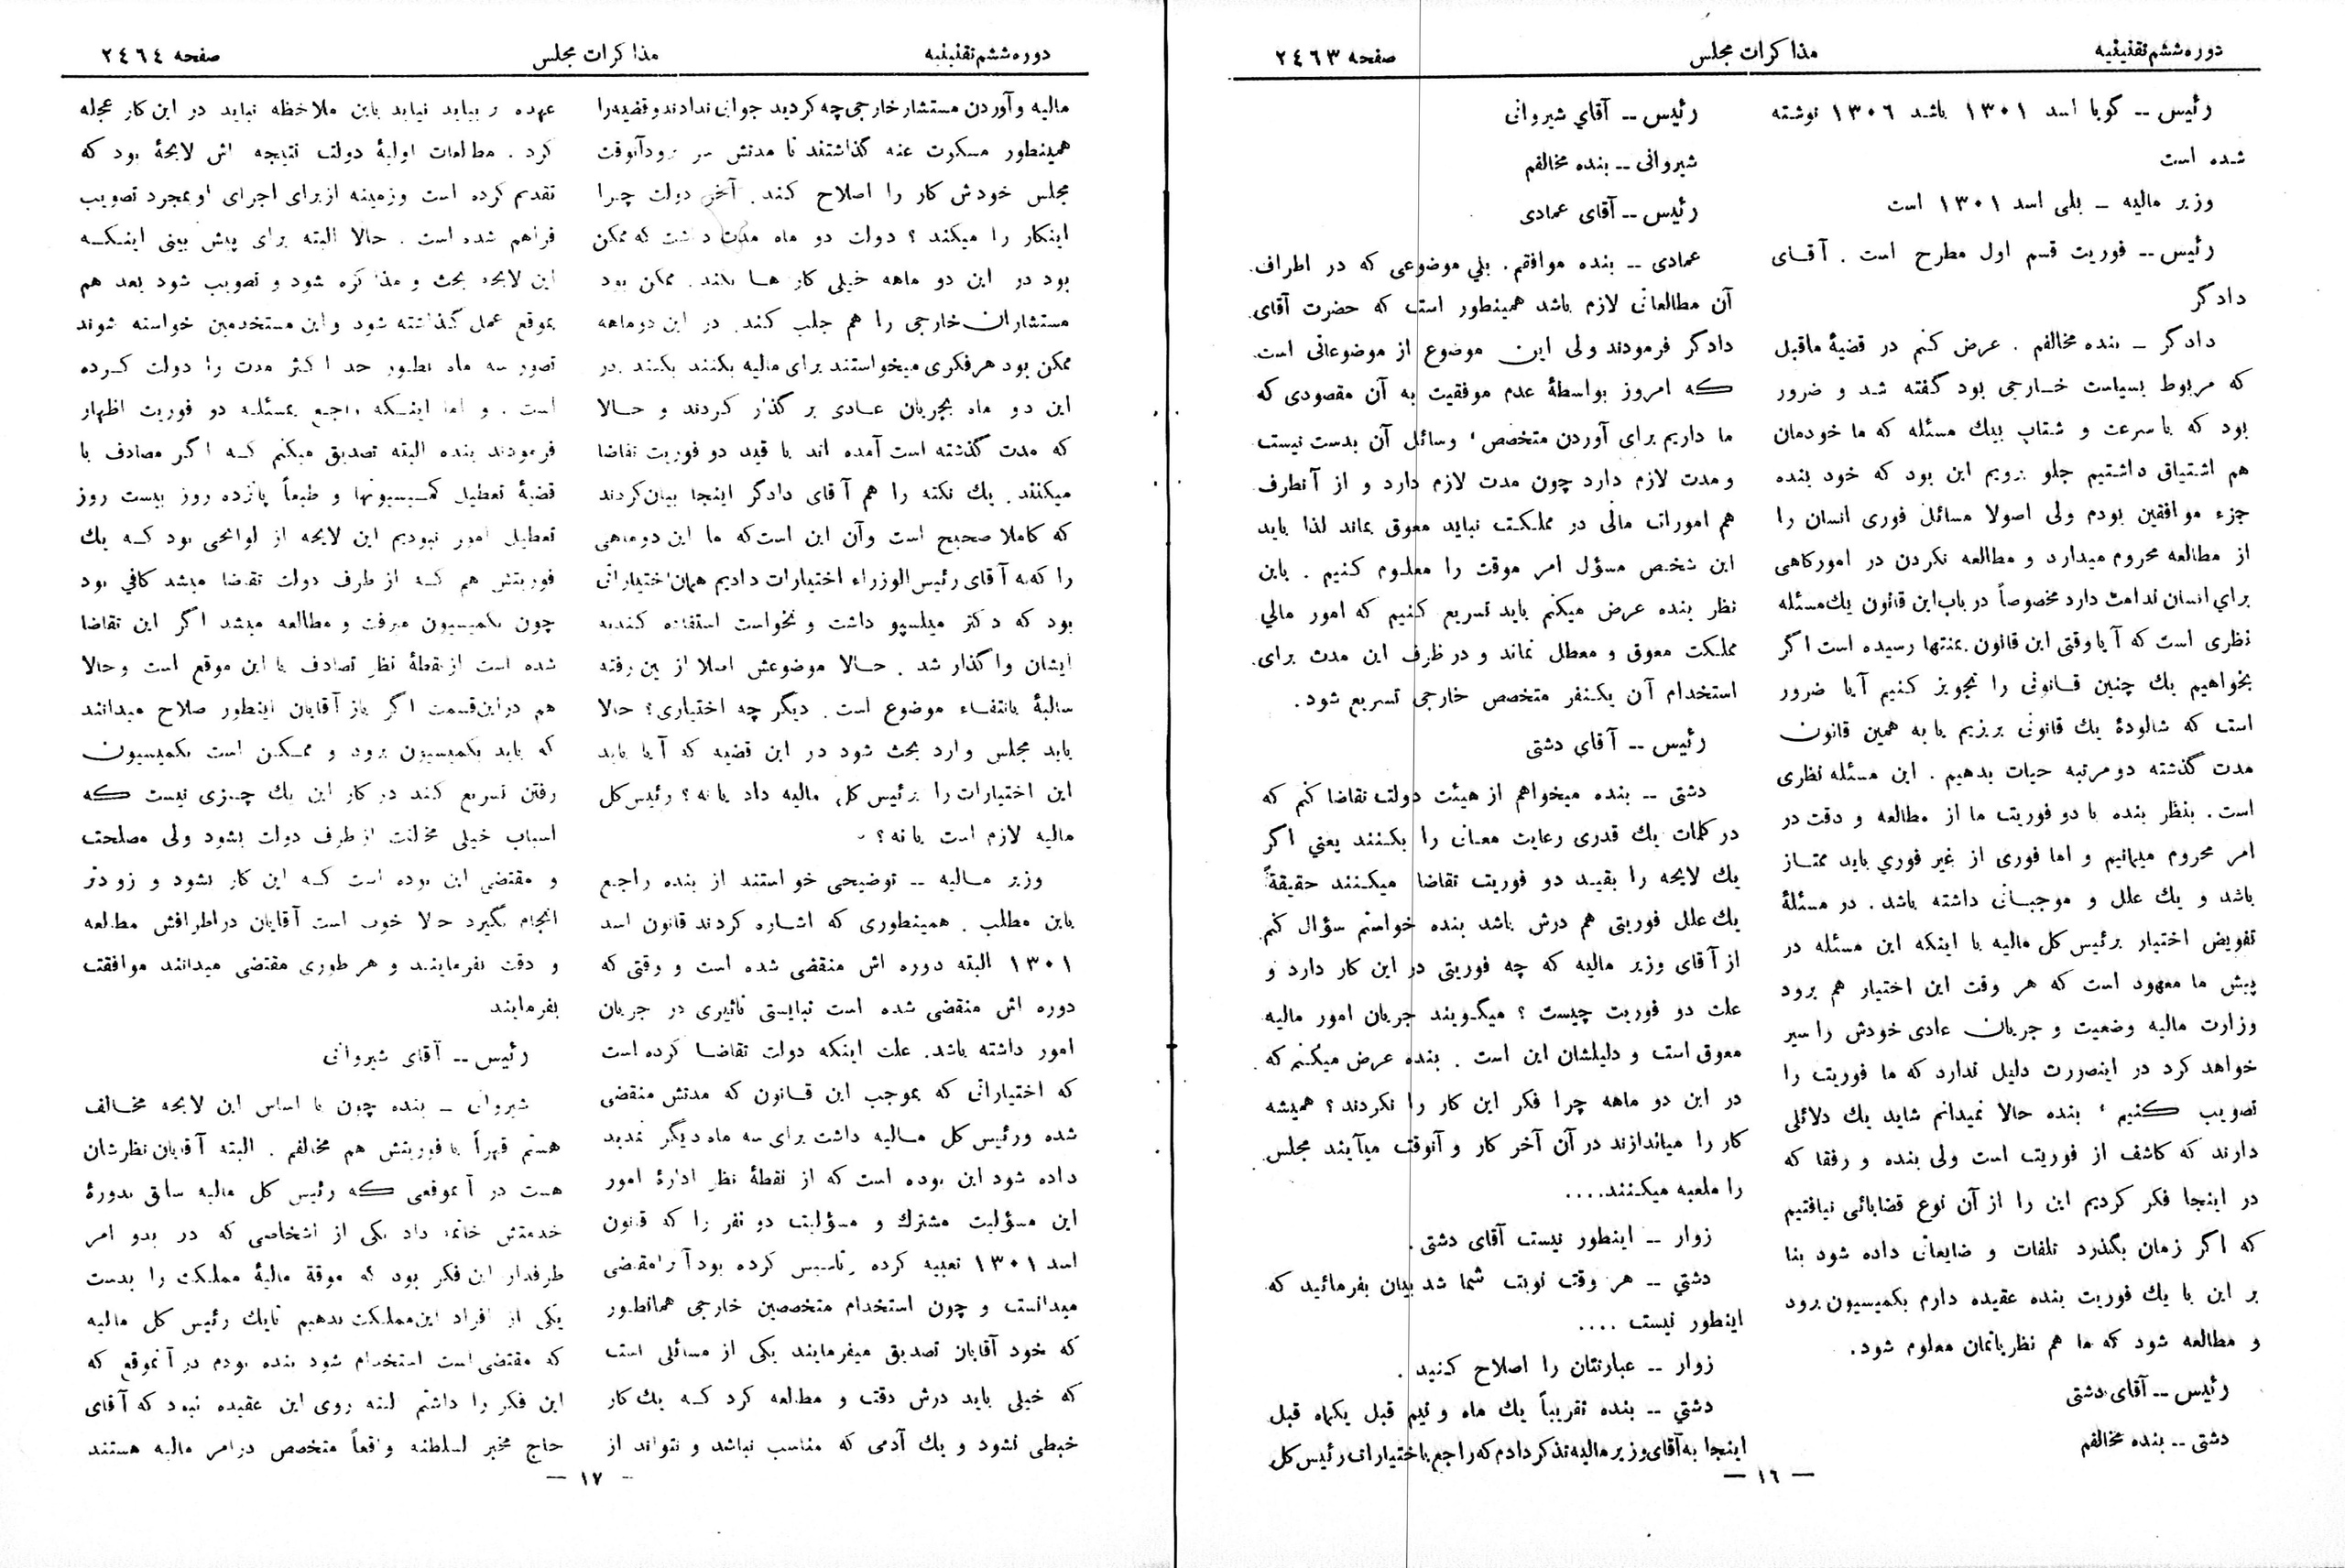 دوره ششم تقنینیه
مذاکرات مجلس
صفحه ۲٤٦۳
رئیس -- گویا اسد ۱۳۰۱ باشد ۱۳۰٦ نوشته
شده است
وزیر مالیه - بلی اسد ۱۳۰۱ است
رئیس -- فوریت قسم اول مطرح است . آقای
دادگر
دادگر - بنده مخالفم . عرض کنم در قضیهٔ ماقبل
که مربوط بسیاست خارجی بود گفته شد و ضرور
بود که با سرعت و شتاب بیك مسئله که ما خودمان
هم اشتیاق داشتیم جلو برویم این بود که خود بنده
جزء موافقین بودم ولی اصولا مسائل فوری انسان را
از مطالعه محروم میدارد و مطالعه نکردن در امور گاهی
برای انسان ندامت دارد مخصوصاً در باب این قانون یك مسئله
نظری است که آیا وقتی این قانون بمنتها رسیده است اگر
بخواهیم یك چنین قانونی را تجویز کنیم آیا ضرور
است که شالودهٔ یك قانونی بریزیم یا به همین قانون
مدت گذشته دو مرتبه حیات بدهیم . این مسئله نظری
است . بنظر بنده با دو فوریت ما از مطالعه و دقت در
امر محروم میمانیم و اما فوری از غیر فوری باید ممتاز
باشد و یك علل و موجباتی داشته باشد . در مسئلهٔ
تفویض اختیار برئیس کل مالیه با اینکه این مسئله در
پیش ما معهود است که هر وقت این اختیار هم برود
وزارت مالیه وضعیت و جریان عادی خودش را سیر
خواهد کرد در اینصورت دلیل ندارد که ما فوریت را
تصویب کنیم ، بنده حالا نمیدانم شاید یك دلائلی
دارند که کاشف از فوریت است ولی بنده و رفقا که
در اینجا فکر کردیم این را از آن نوع قضایائی نیافتیم
که اگر زمان بگذرد تلفات و ضایعاتی داده شود بنا
بر این با یك فوریت بنده عقیده دارم بکمیسیون برود
و مطالعه شود که ما هم نظریاتمان معلوم شود.
رئیس -- آقای دشتی
دشتی -- بنده مخالفم
رئیس -- آقای شیروانی
شیروانی -- بنده مخالفم
رئیس -- آقای عمادی
عمادی -- بنده موافقم. بلی موضوعی که در اطراف
آن مطالعاتی لازم باشد همینطور است که حضرت آقای
دادگر فرمودند ولی این موضوع از موضوعاتی است
که امروز بواسطهٔ عدم موفقیت به آن مقصودی که
ما داریم برای آوردن متخصص ، وسائل آن بدست نیست
و مدت لازم دارد چون مدت لازم دارد و از آنطرف
هم امورات مالی در مملکت نباید معوق بماند لذا باید
این شخص مسؤل امر موقت را معلوم کنیم . باین
نظر بنده عرض میکنم باید تسریع کنیم که امور مالی
مملکت معوق و معطل نماند و در ظرف این مدت برای
استخدام آن یکنفر متخصص خارجی تسریع شود.
رئیس -- آقای دشتی
دشتی -- بنده میخواهم از هیئت دولت تقاضا کنم که
در کلمات یك قدری رعایت معانی را بکنند یعنی اگر
یك لایحه را بقید دو فوریت تقاضا میکنند حقیقةً
یك علل فوریتی هم درش باشد بنده خواستم سؤال کنم
از آقای وزیر مالیه که چه فوریتی در این کار دارد و
علت دو فوریت چیست ؟ میگویند جریان امور مالیه
معوق است و دلیلشان این است . بنده عرض میکنم که
در این دو ماهه چرا فکر این کار را نکردند ؟ همیشه
کار را میاندازند در آن آخر کار و آنوقت میآیند مجلس
را ملعبه میکنند....
زوار -- اینطور نیست آقای دشتی.
دشتی -- هر وقت نوبت شما شد بیان بفرمائید که
اینطور نیست ....
زوار -- عبارتتان را اصلاح کنید .
دشتی -- بنده تقریباً یك ماه و نیم قبل یکماه قبل
اینجا به آقای وزیر مالیه تذکر دادم که راجع باختیارات رئیس کل
— ۱٦ —
دوره ششم تقنینیه
مذاکرات مجلس
صفحه ۲٤٦٤
مالیه و آوردن مستشار خارجی چه کردید جوابی ندادند و قضیه را
همینطور مسکوت عنه گذاشتند تا مدتش سر رود آنوقت
مجلس خودش کار را اصلاح کند. آخر دولت چرا
اینکار را میکند ؟ دولت دو ماه مدت داشت که ممکن
بود در این دو ماهه خیلی کارها بکند. ممکن بود
مستشاران خارجی را هم جلب کند. در این دو ماهه
ممکن بود هر فکری میخواستند برای مالیه بکنند بکنند. در
این دو ماه بجریان عادی بر گذار کردند و حالا
که مدت گذشته است آمده اند با قید دو فوریت تقاضا
میکنند. یك نکته را هم آقای دادگر اینجا بیان کردند
که کاملا صحیح است و آن این است که ما این دو ماهی
را که به آقای رئیس الوزراء اختیارات دادیم همان اختیاراتی
بود که دکتر میلسپو داشت و نخواست استفاده کند به
ایشان واگذار شد . حالا موضوعش اصلا از بین رفته
سالبهٔ بانتفاء موضوع است. دیگر چه اختیاری؟ حالا
باید مجلس وارد بحث شود در این قضیه که آیا باید
این اختیارات را برئیس کل مالیه داد یا نه ؟ رئیس کل
مالیه لازم است یا نه ؟
وزیر مالیه -- توضیحی خواستند از بنده راجع
باین مطلب . همینطوری که اشاره کردند قانون اسد
۱۳۰۱ البته دوره اش منقضی شده است و وقتی که
دوره اش منقضی شده است نبایستی تأثیری در جریان
امور داشته باشد. علت اینکه دولت تقاضا کرده است
که اختیاراتی که بموجب این قانون که مدتش منقضی
شده و رئیس کل مالیه داشت برای سه ماه دیگر تمدید
داده شود این بوده است که از نقطهٔ نظر ادارهٔ امور
این مسؤلیت مشترك و مسؤلیت دو نفر را که قانون
اسد ۱۳۰۱ تعبیه کرده و تأسیس کرده بود آنرا مقتضی
میدانست و چون استخدام متخصصین خارجی همانطور
که خود آقایان تصدیق میفرمایند یکی از مسائلی است
که خیلی باید درش دقت و مطالعه کرد که یك کار
خبطی نشود و یك آدمی که مناسب نباشد و نتواند از
عهده بر بیاید نیاید باین ملاحظه نباید در این کار عجله
کرد . مطالعات اولیهٔ دولت نتیجه اش لایحهٔ بود که
تقدیم کرده است و زمینه از برای اجرای او بمجرد تصویب
فراهم شده است . حالا البته برای پیش بینی اینکه
این لایحه بحث و مذاکره شود و تصویب شود بعد هم
بموقع عمل گذاشته شود و این مستخدمین خواسته شوند
تصور سه ماه بطور حد اکثر مدت را دولت کرده
است . و اما اینکه راجع بمسئله دو فوریت اظهار
فرمودند بنده البته تصدیق میکنم که اگر مصادف با
قضیهٔ تعطیل کمیسیونها و طبعاً پانزده روز بیست روز
تعطیل امور نبودیم این لایحه از لوایحی بود که یك
فوریتش هم که از طرف دولت تقاضا میشد کافی بود
چون بکمیسیون میرفت و مطالعه میشد اگر این تقاضا
شده است از نقطهٔ نظر تصادف با این موقع است و حالا
هم در این قسمت اگر باز آقایان اینطور صلاح میدانند
که باید بکمیسیون برود و ممکن است بکمیسیون
رفتن تسریع کند در کار این یك چیزی نیست که
اسباب خیلی مخالفت از طرف دولت بشود ولی مصلحت
و مقتضی این بوده است که این کار بشود و زودتر
انجام بگیرد حالا خوب است آقایان در اطرافش مطالعه
و دقت بفرمایند و هر طوری مقتضی میدانند موافقت
بفرمایند
رئیس -- آقای شیروانی
شیروانی - بنده چون با اساس این لایحه مخالف
هستم قهراً با فوریتش هم مخالفم . البته آقایان نظرشان
هست در آنموقعی که رئیس کل مالیه سابق بدورهٔ
خدمتش خاتمه داد یکی از اشخاصی که در بدو امر
طرفدار این فکر بود که موقة مالیهٔ مملکت را بدست
یکی از افراد این مملکت بدهیم تا یك رئیس کل مالیه
که مقتضی است استخدام شود بنده بودم در آنموقع که
این فکر را داشتم البته روی این عقیده نبود که آقای
حاج مخبر السلطنه واقعاً متخصص در امر مالیه هستند
— ۱۷ —